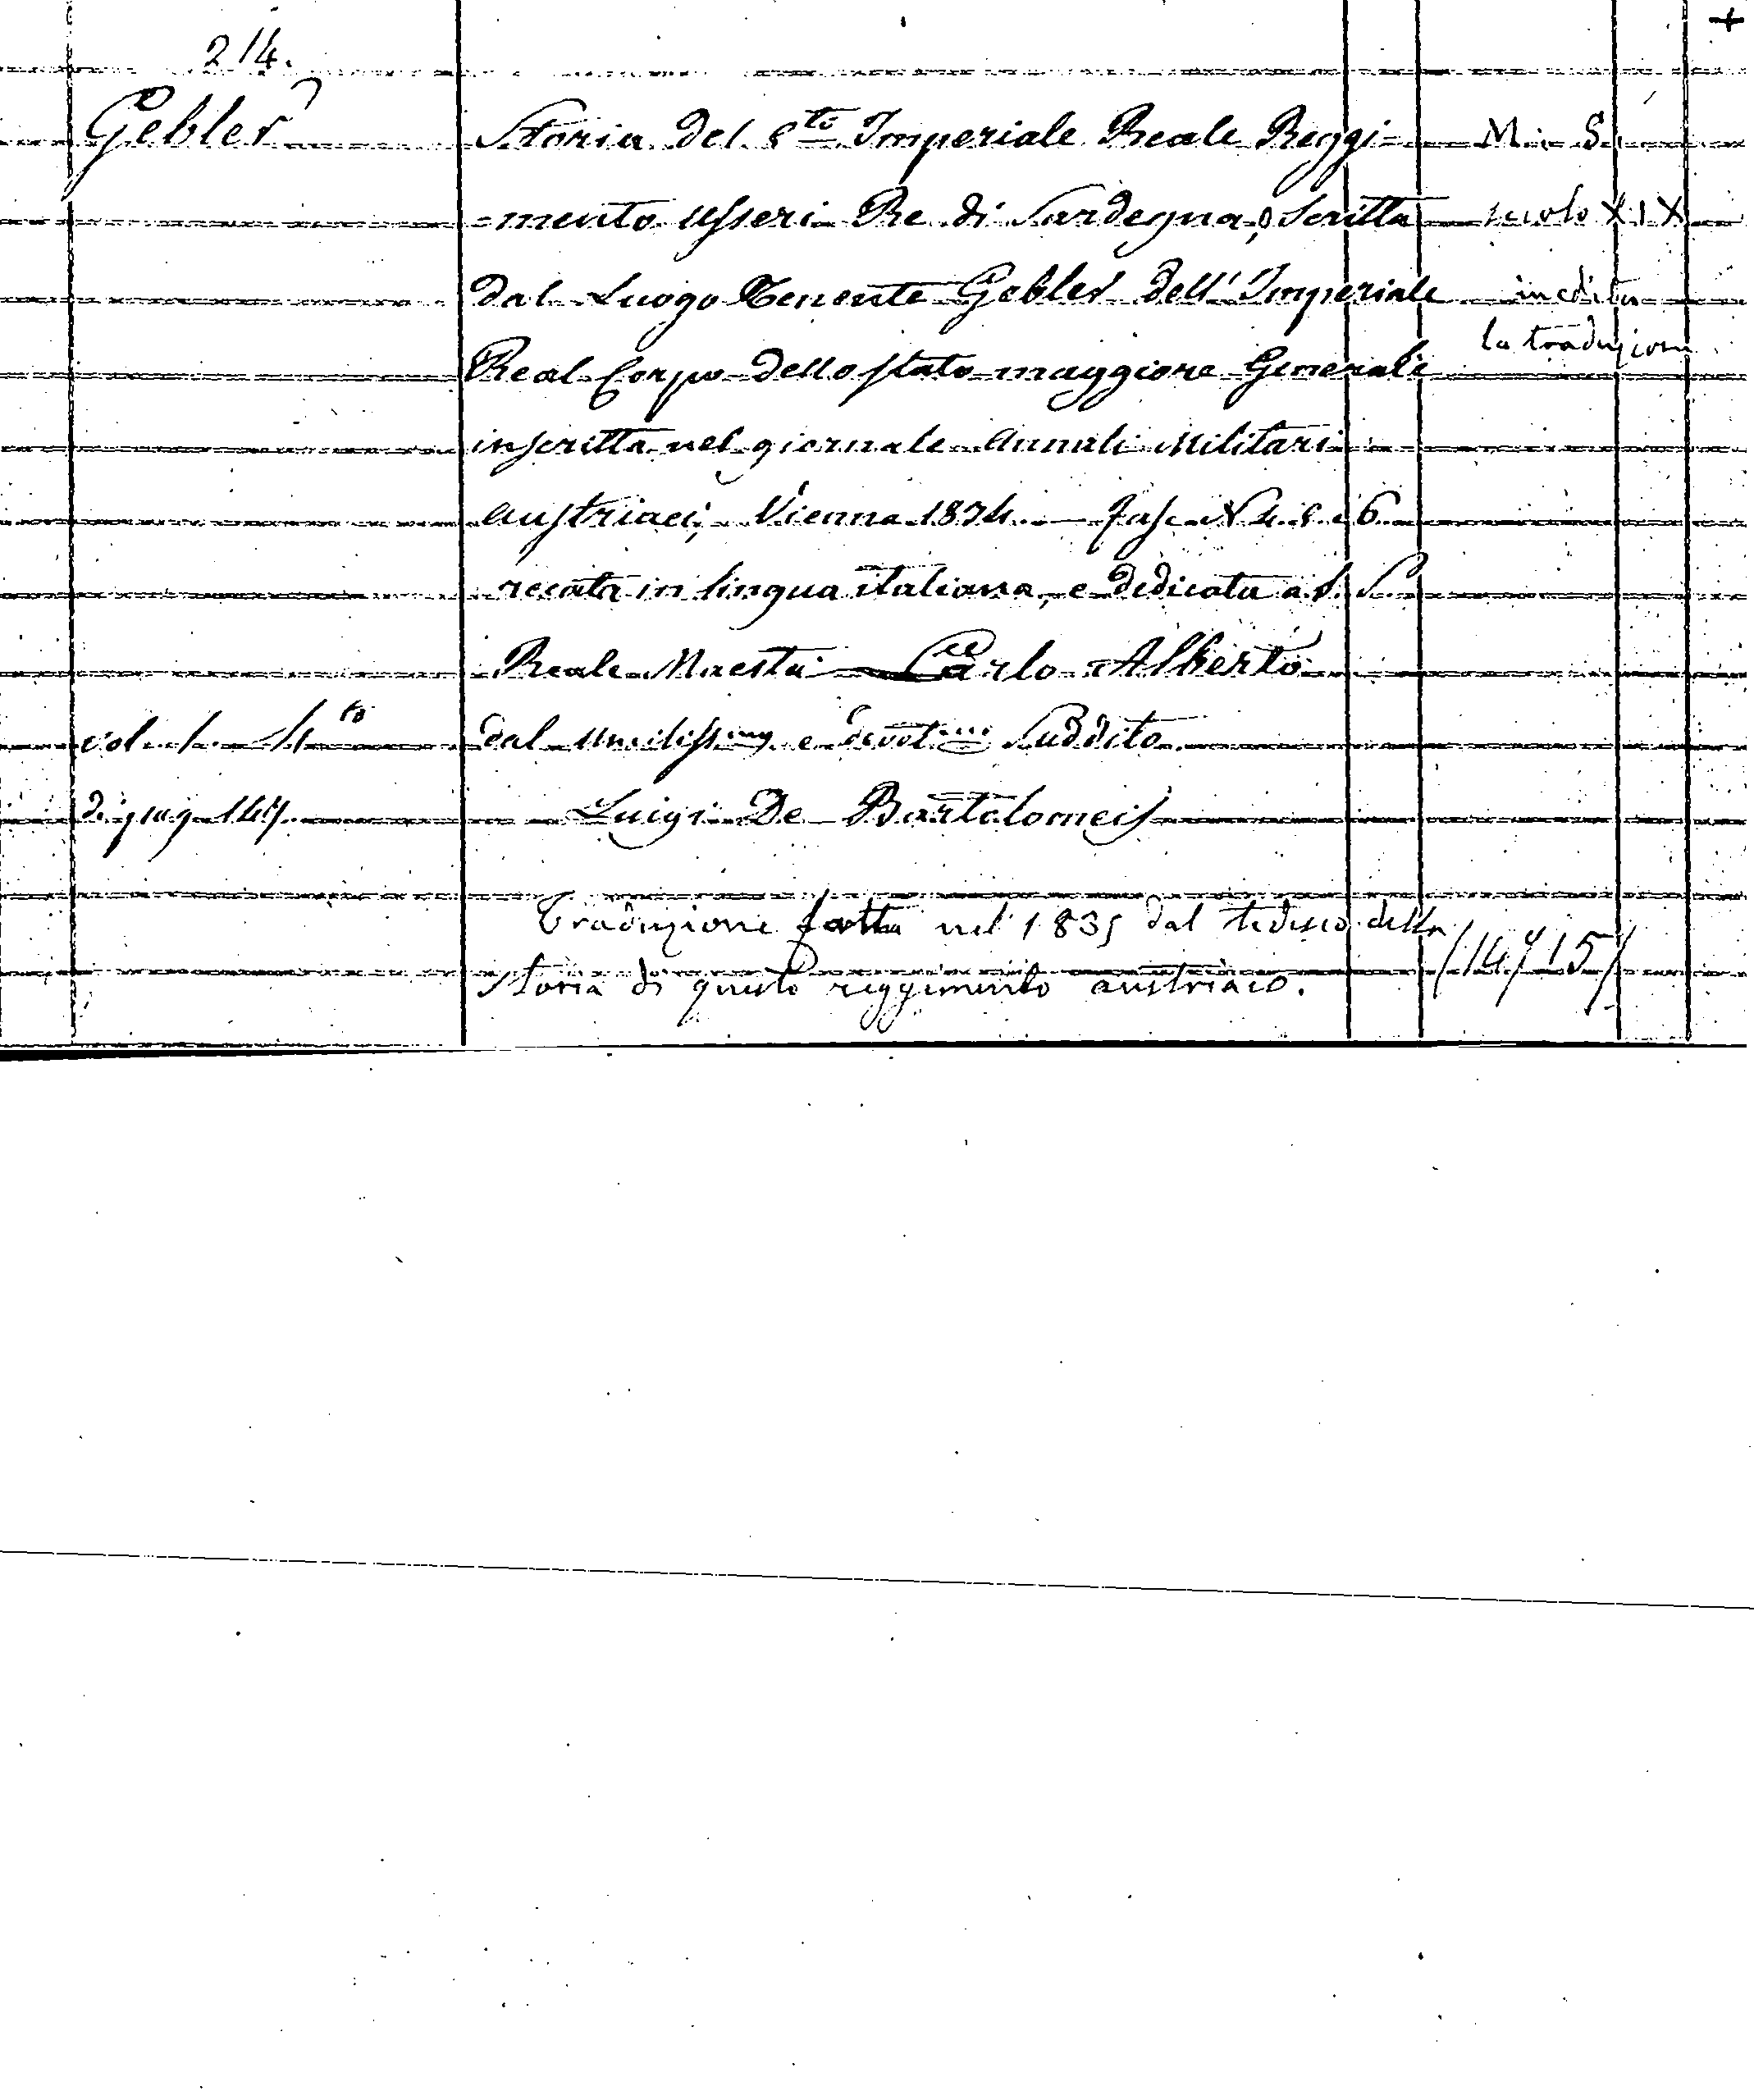 214.
Gebler
Storia del 5to Imperiale Reale Reggi-
-mento Usseri Re di Sardegna, Scritta
dal Luogo Tenente Gebler dell' Imperiale
Real Corpo dello stato maggiore Generale
inscritta nel giornale Annali Militari
Austriaci, Vienna 1834. — Fasc. N 4. 5. e 6.
recata in lingua italiana, e dedicata a S. S.
Reale Maestà Carlo Alberto
vol. 1. 4to
dal umilissimo e devotmo Suddito
di pag. 147.
Luigi De Bartolomeis
Traduzione fatta nel 1835 dal tedesco della
storia di questo reggimento austriaco.
M. S.
secolo XIX
inedita
la traduzione
(14715)